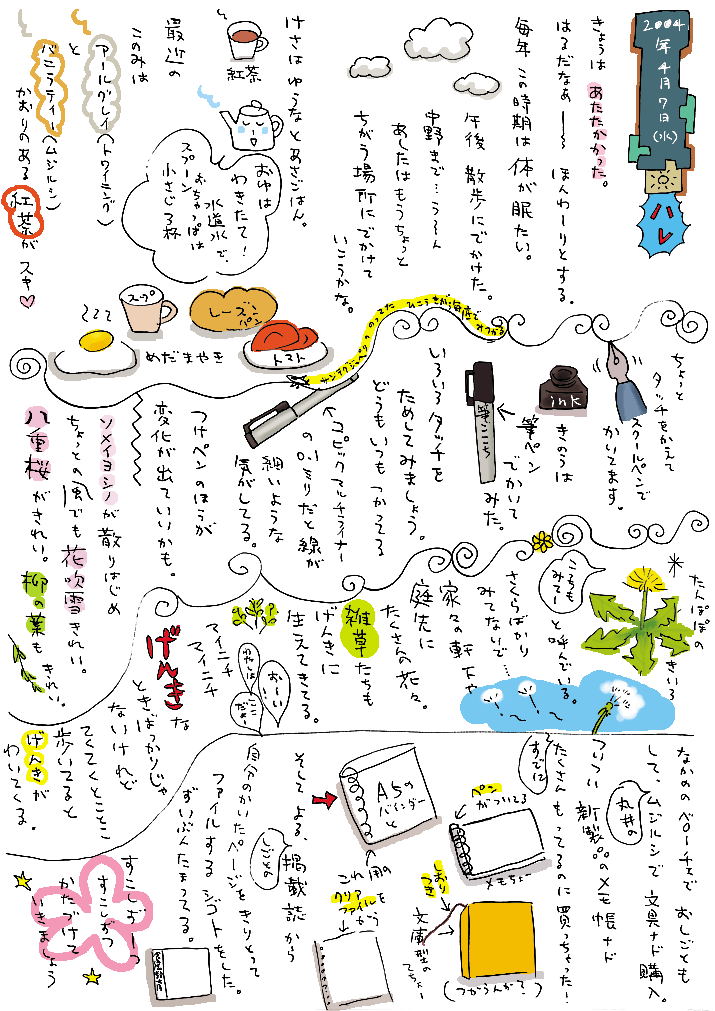 2004年4月7日(水)
ハレ
きょうは あたたかかった。
はるだなぁ〜〜 ほんわ〜りとする。
毎年 この時期は 体が眠たい。
午後 散歩にでかけた。
中野まで…う〜ん
あしたはもうちょっと
ちがう場所にでかけて
いこうかな。
けさは ゆうなとあさごはん。
紅茶
おゆは
わきたて!
水道水で、
おちゃっぱは
スプーン
小さじ3杯
最近の
このみは
アールグレイ(トワイニング)
と
バニラティー(ムジルシ)
かおりのある 紅茶が スキ♡
スープ
レーズンパン
めだまやき
トマト
サンテグジュペリの のってた ひこうきが海底で みつかる
ちょっと
タッチをかえて
スクールペンで
かいてます。
ink
きのうは
筆ペン
でかいて
みた。
筆ごこち
いろいろタッチを
ためしてみましょう。
どうもいつも つかってる
コピックマルチライナー
の0.1ミリだと線が
細いような
気がしてる。
つけペンのほうが
変化が出ていいかも。
ソメイヨシノが 散りはじめ
ちょっとの風でも 花吹雪きれい。
八重桜がきれい。柳の葉も きれい。
たんぽぽの きいろ
こっちも
みてー
と呼んでいる。
さくらばかり
みてないで…
家々の軒下や
庭先に
たくさんの花々。
雑草たちも
げんきに
生えてきてる。
お〜い
わたしは
ここ
だよー
マイニチ
マイニチ
げんきな
ときばっかりじゃ
ないけれど
てくてくとことこ
歩いてると
げんきが
わいてくる。
なかののベローチェで おしごとも
して、ムジルシで 文具ナド 購入。
丸井の
ついつい 新製品のメモ帳ナド
たくさん もってるのに買っちゃった!
すでに
ペン
がついてる
メモちょー
しおり
つき
文庫型の
てちょー
(つかうんか?)
A5の
バインダー
と
これ用の
クリア
ファイルを
かう
そしてよる、掲載誌から
しごとの
自分のかいたページをきりとって
ファイルする シゴトをした。
ずいぶんたまってる。
すこしずーつ
すこしずつ
かたづけて
いきましょう